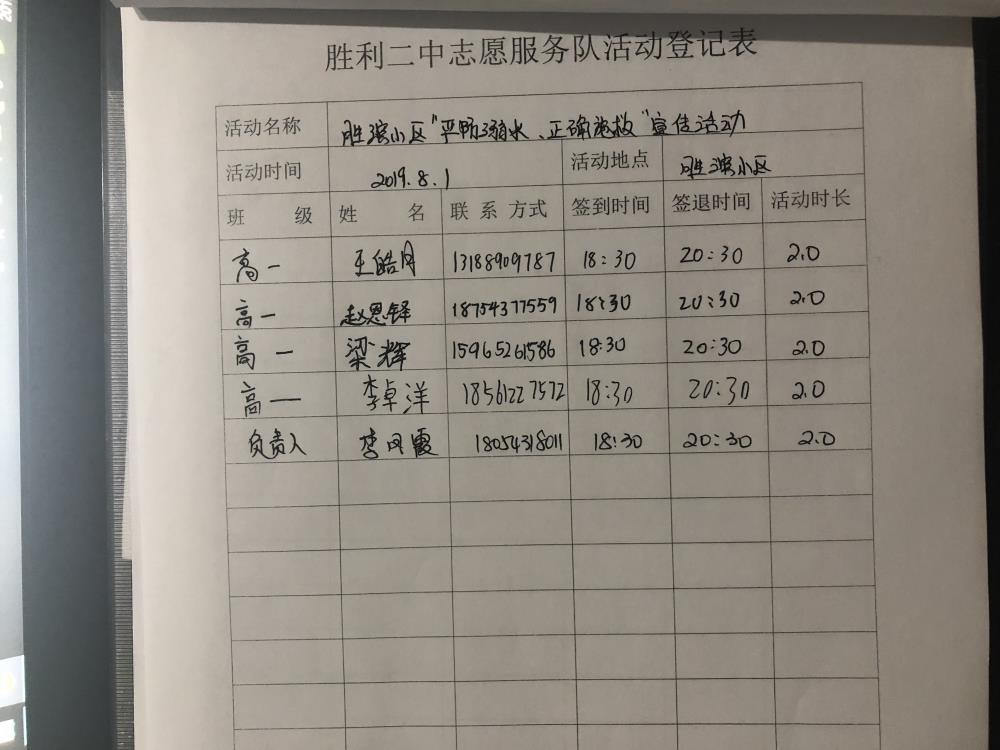 胜利二中志愿服务队活动登记表
活动名称 胜滨小区"严防溺水、正确施救"宣传活动
活动时间 2019.8.1 活动地点 胜滨小区
班 级 姓 名 联系方式 签到时间 签退时间 活动时长
高一 王皓月 13188909787 18:30 20:30 2.0
高一 赵恩铎 18754377559 18:30 20:30 2.0
高一 梁辉 15965261586 18:30 20:30 2.0
高一 李卓洋 18561227572 18:30 20:30 2.0
负责人 李风霞 18054318011 18:30 20:30 2.0